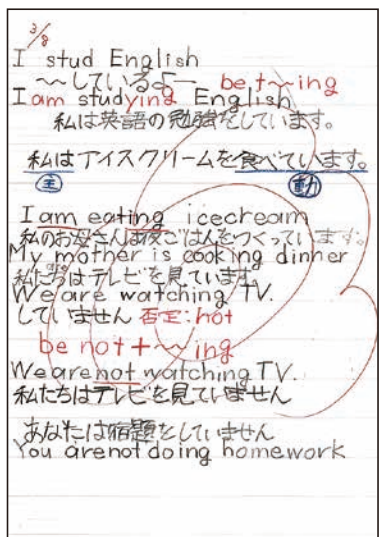 3/8
I stud English
〜〜しているよー be t〜〜ing
I am studying English
私は英語の勉強をしています。
私はアイスクリームを食べています。
主 動
I am eating icecream
私のお母さんは夜ごはんをつくっています。
My mother is cooking dinner
私たちはテレビを見ています。
We are watching TV.
していません 否定:not
be not+〜〜ing
We are not watching TV.
私たちはテレビを見ていません
あなたは宿題をしていません
You are not doing homework